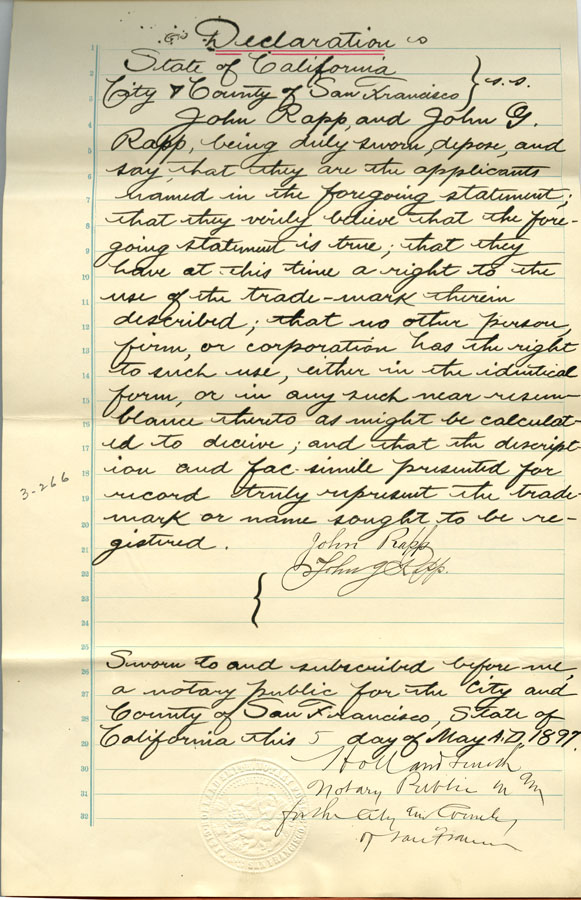 Declaration
State of California
City & County of San Francisco } s.s.
John Rapp, and John G.
Rapp, being duly sworn, depose, and
say, that they are the applicants
named in the foregoing statement;
that they verily believe that the fore-
going statement is true; that they
have at this time a right to the
use of the trade-mark therein
described; that no other person,
firm, or corporation has the right
to such use, either in the identical
form, or in any such near resem-
blance thereto as might be calculat-
ed to deceive; and that the descript-
ion and fac-simile presented for
record truly represent the trade-
mark or name sought to be re-
gistered.
3-266
John Rapp
John G Rapp.
Sworn to and subscribed before me,
a notary public for the City and
County of San Francisco, State of
California this 5 day of May A.D. 1897
Holland Smith
Notary Public in &
for the City and County
of San Francisco